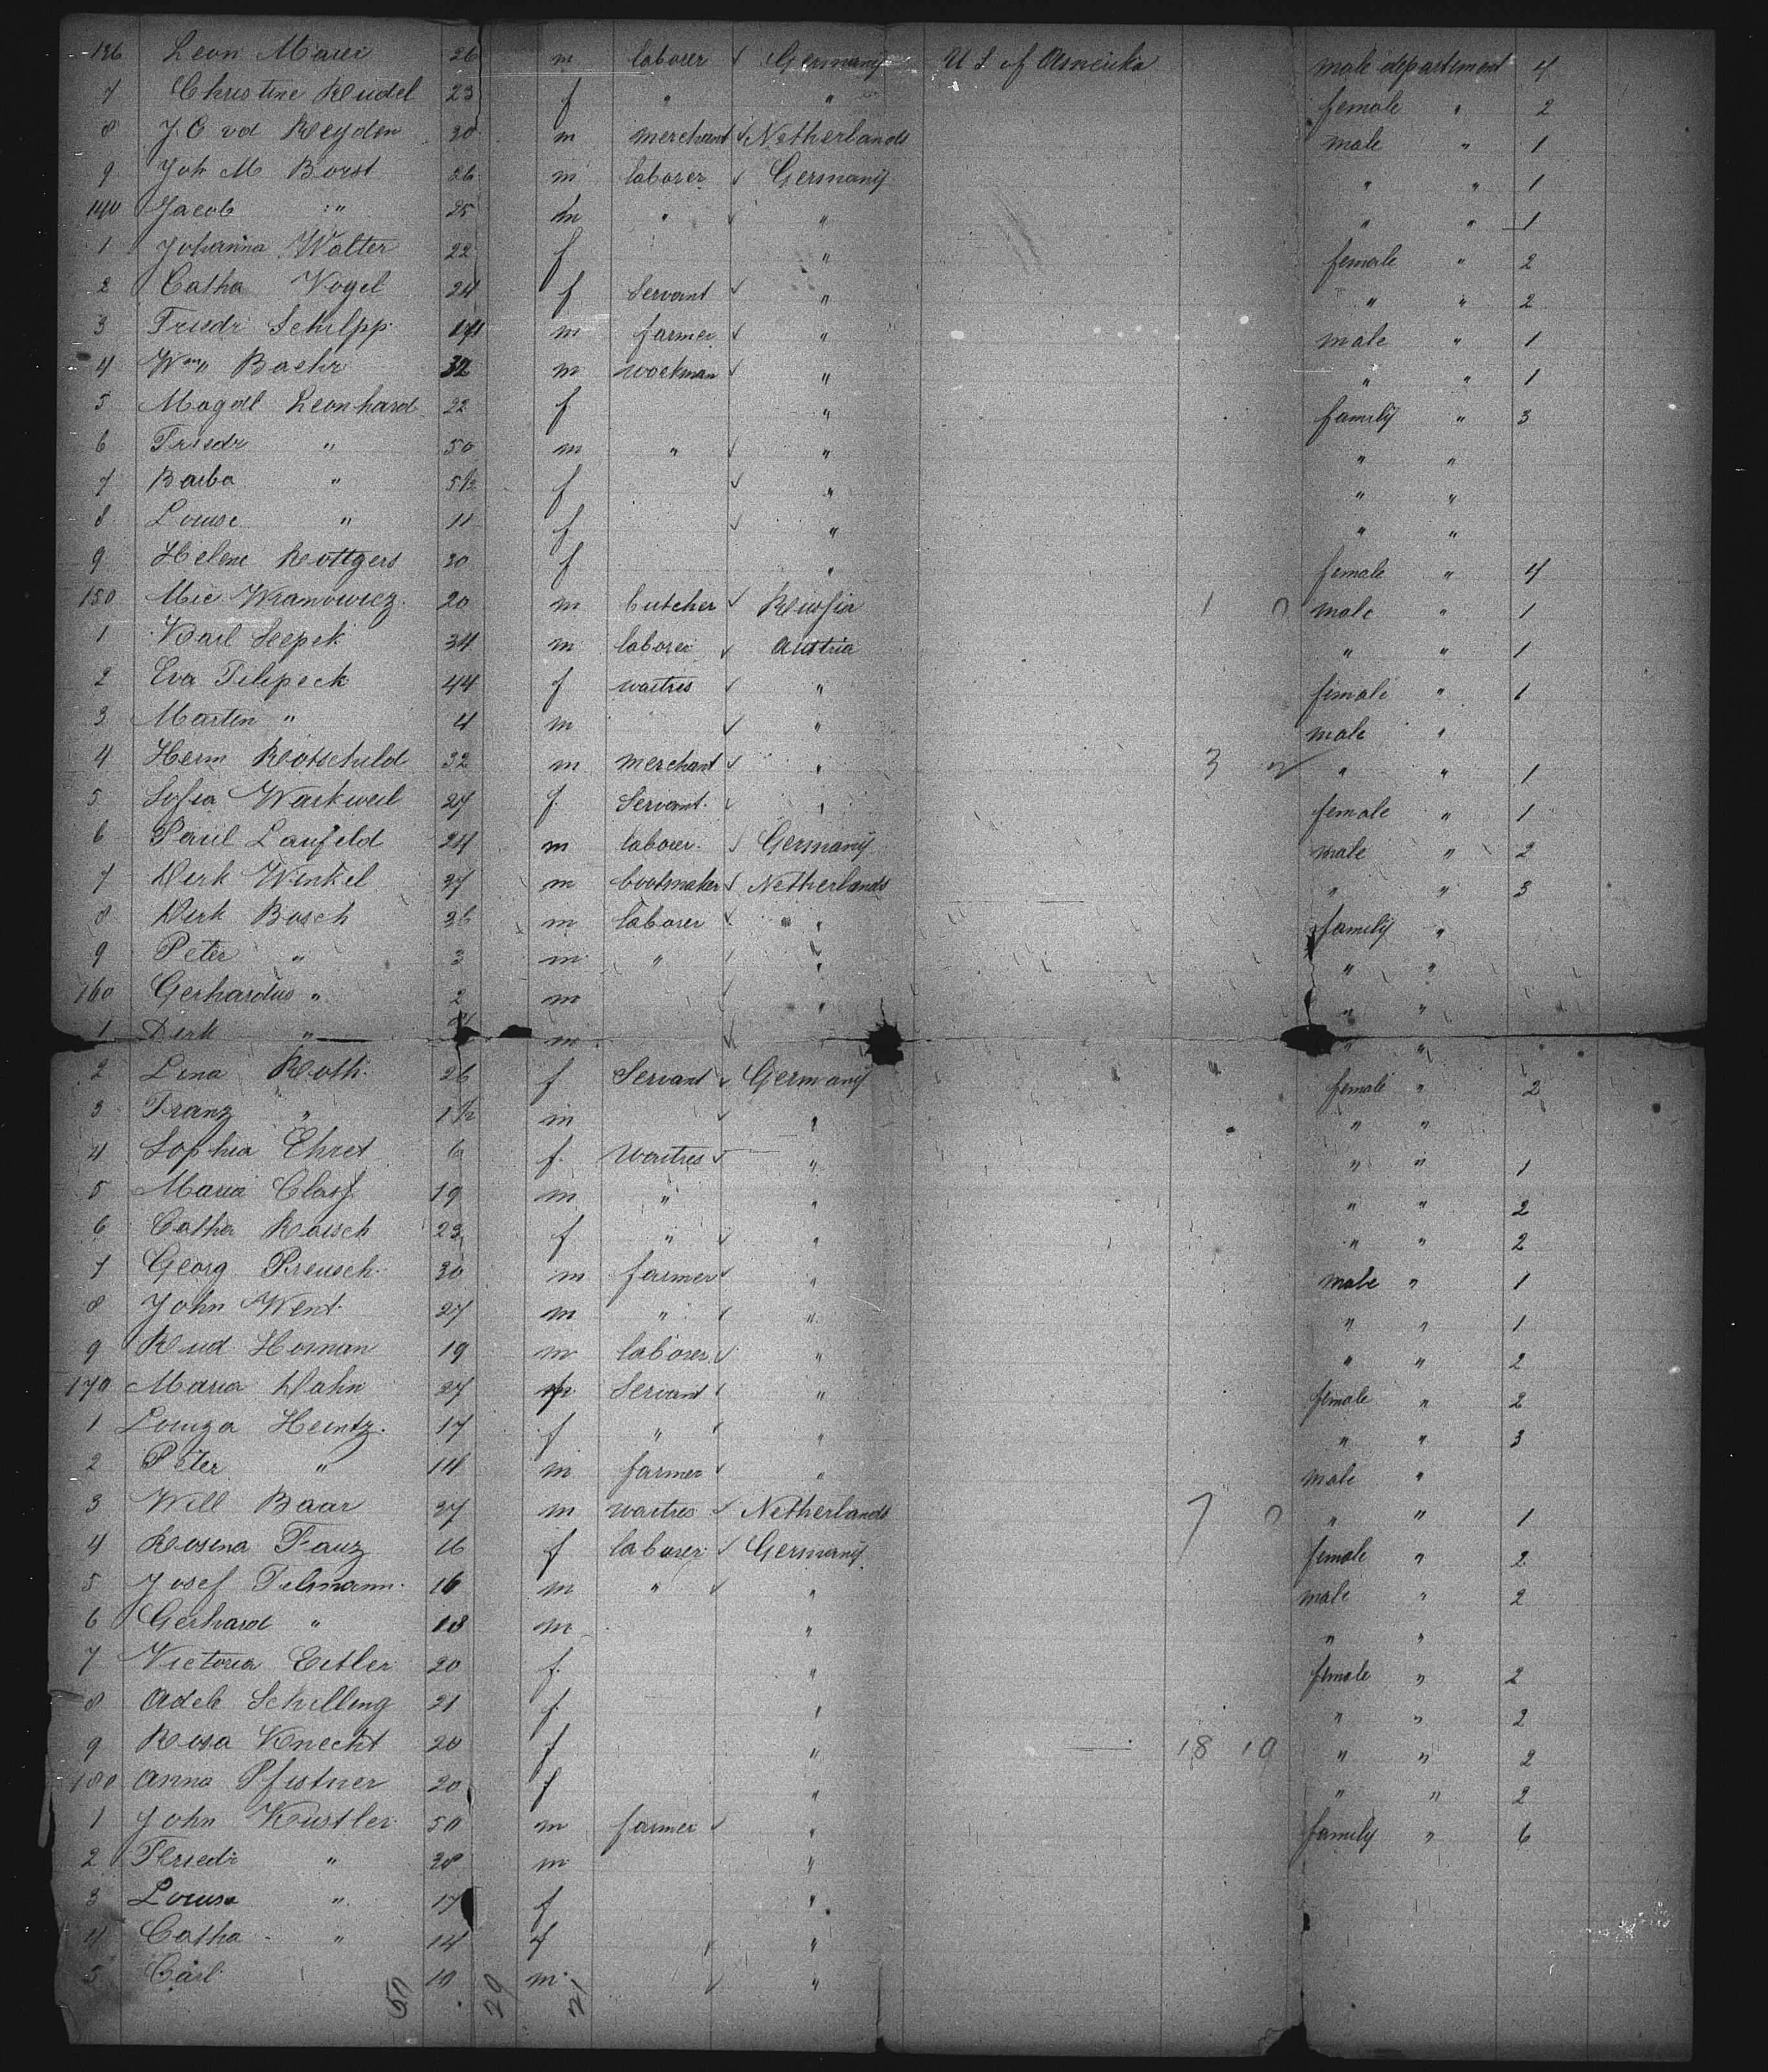 136 Leon Maier 26 m laborer ✓ Germany U S of Amerika male department 4
7 Christine Reudel 23 f " " female " 2
8 J C vd Reyden 30 m merchant ✓ Netherlands male " 1
9 Joh M Borst 26 m laborer ✓ Germany " " 1
140 Jacob " 25 m " ✓ " " " 1
1 Johanna Walter 22 f " female " 2
2 Catha Vogel 24 f Servant ✓ " " " 2
3 Friedr Schilpp m farmer ✓ " male " 1
4 Wm Baehr 32 m workman ✓ " " " 1
5 Magdl Leonhard 22 f " family " 3
6 Friedr " 50 m " ✓ " " "
7 Barba " f ✓ " " "
8 Louise " 11 f ✓ " " "
9 Helene Rottgers 30 f " female " 4
150 Mic Wranowicz 20 m butcher ✓ Russia 1 male " 1
1 Karl Seepek 34 m laborer ✓ Austria " " 1
2 Eva Filipeck 44 f waitres ✓ " female " 1
3 Martin " 4 m ✓ " male "
4 Herm Rotschild 32 m merchant ✓ " 3 " " 1
5 Sofia Warkweil 27 f. Servant ✓ " female " 1
6 Paul Laufeld 24 m laborer ✓ Germany male " 2
7 Derk Winkel 37 m bootmaker ✓ Netherlands " " 3
8 Derk Bosch 36 m laborer ✓ " family "
9 Peter " 3 m " " " "
160 Gerhardus " 2 m ✓ " " "
1 Derk " m ✓ " "
2 Lina Roth 26 f Servant ✓ Germany female " 2
3 Franz " 1 1/2 m ✓ " " "
4 Sophia Ehret f. Waitres ✓ " " " 1
5 Maria Class 19 m " " " " 2
6 Catha Raisch 23 f " ✓ " " " 2
7 Georg Preusch 30 m farmer ✓ " male " 1
8 John Went 27 m " ✓ " " " 1
9 Rud Homan 19 m laborer ✓ " " " 2
170 Maria Dahn 27 Servant ✓ " female " 2
1 Louiza Heintz 17 f " ✓ " " " 3
2 Peter " 14 m farmer ✓ " male "
3 Will Baar 37 m waitres ✓ Netherlands 7 " " 1
4 Rosina Fauz 16 f laborer ✓ Germany female " 2
5 Josef Tilmann 16 m " ✓ " male " 2
6 Gerhard " 18 m " " "
7 Victoria Eitler 20 f. " female " 2
8 Adele Schilling 21 f " " " 2
9 Rosa Knecht 20 f " 18 10 " " 2
180 Anna Pfistner 20 f " " " 2
1 John Kustler 50 m farmer ✓ " family " 6
2 Friedr " 38 m "
3 Louise " 17 f "
4 Catha " 14 f "
5 Carl 10 m. ✓ "
50 29 21